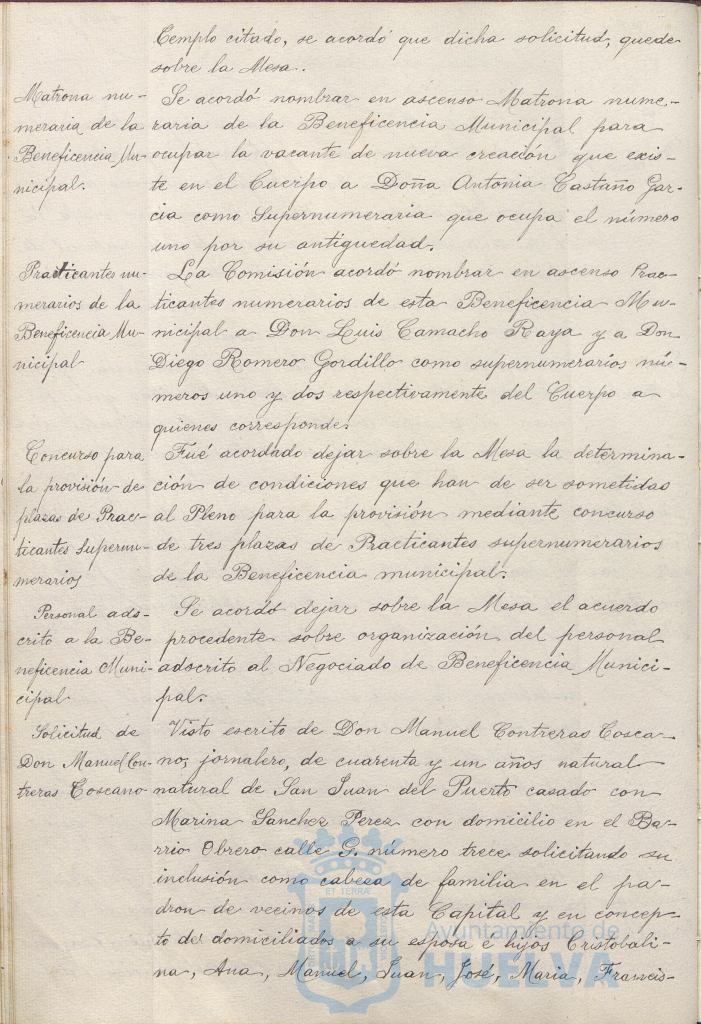 Templo citado, se acordó que dicha solicitud, quede
sobre la Mesa.
Matrona nu-
meraria de la
Beneficencia Mu-
nicipal.
Se acordó nombrar en ascenso Matrona nume-
raria de la Beneficencia Municipal para
ocupar la vacante de nueva creación que exis-
te en el Cuerpo a Doña Antonia Castaño Gar-
cia como Supernumeraria que ocupa el número
uno por su antiguedad.
Practicantes nu-
merarios de la
Beneficencia Mu-
nicipal
La Comisión acordó nombrar en ascenso Prac-
ticantes numerarios de esta Beneficencia Mu-
nicipal a Don Luis Camacho Raya y a Don
Diego Romero Gordillo como supernumerarios nú-
meros uno y dos respectivamente del Cuerpo a
quienes corresponde.
Concurso para
la provisión de
plazas de Prac-
ticantes Supernu-
merarios
Fué acordado dejar sobre la Mesa la determina-
ción de condiciones que han de ser sometidas
al Pleno para la provisión mediante concurso
de tres plazas de Practicantes supernumerarios
de la Beneficencia municipal.
Personal ads-
crito a la Be-
neficencia Muni-
cipal
Se acordó dejar sobre la Mesa el acuerdo
procedente sobre organización del personal
adscrito al Negociado de Beneficencia Munici-
pal.
Solicitud de
Don Manuel Con-
treras Toscano
Visto escrito de Don Manuel Contreras Tosca-
no, jornalero, de cuarenta y un años natural
natural de San Juan del Puerto casado con
Marina Sanchez Perez con domicilio en el Ba-
rrio Obrero calle G. número trece solicitando su
inclusión como cabeza de familia en el pa-
dron de vecinos de esta Capital y en concep-
to de domiciliados a su esposa e hijos Cristobali-
na, Ana, Manuel, Juan, José, Maria, Francis-
ET TERRÆ
Ayuntamiento de
HUELVA